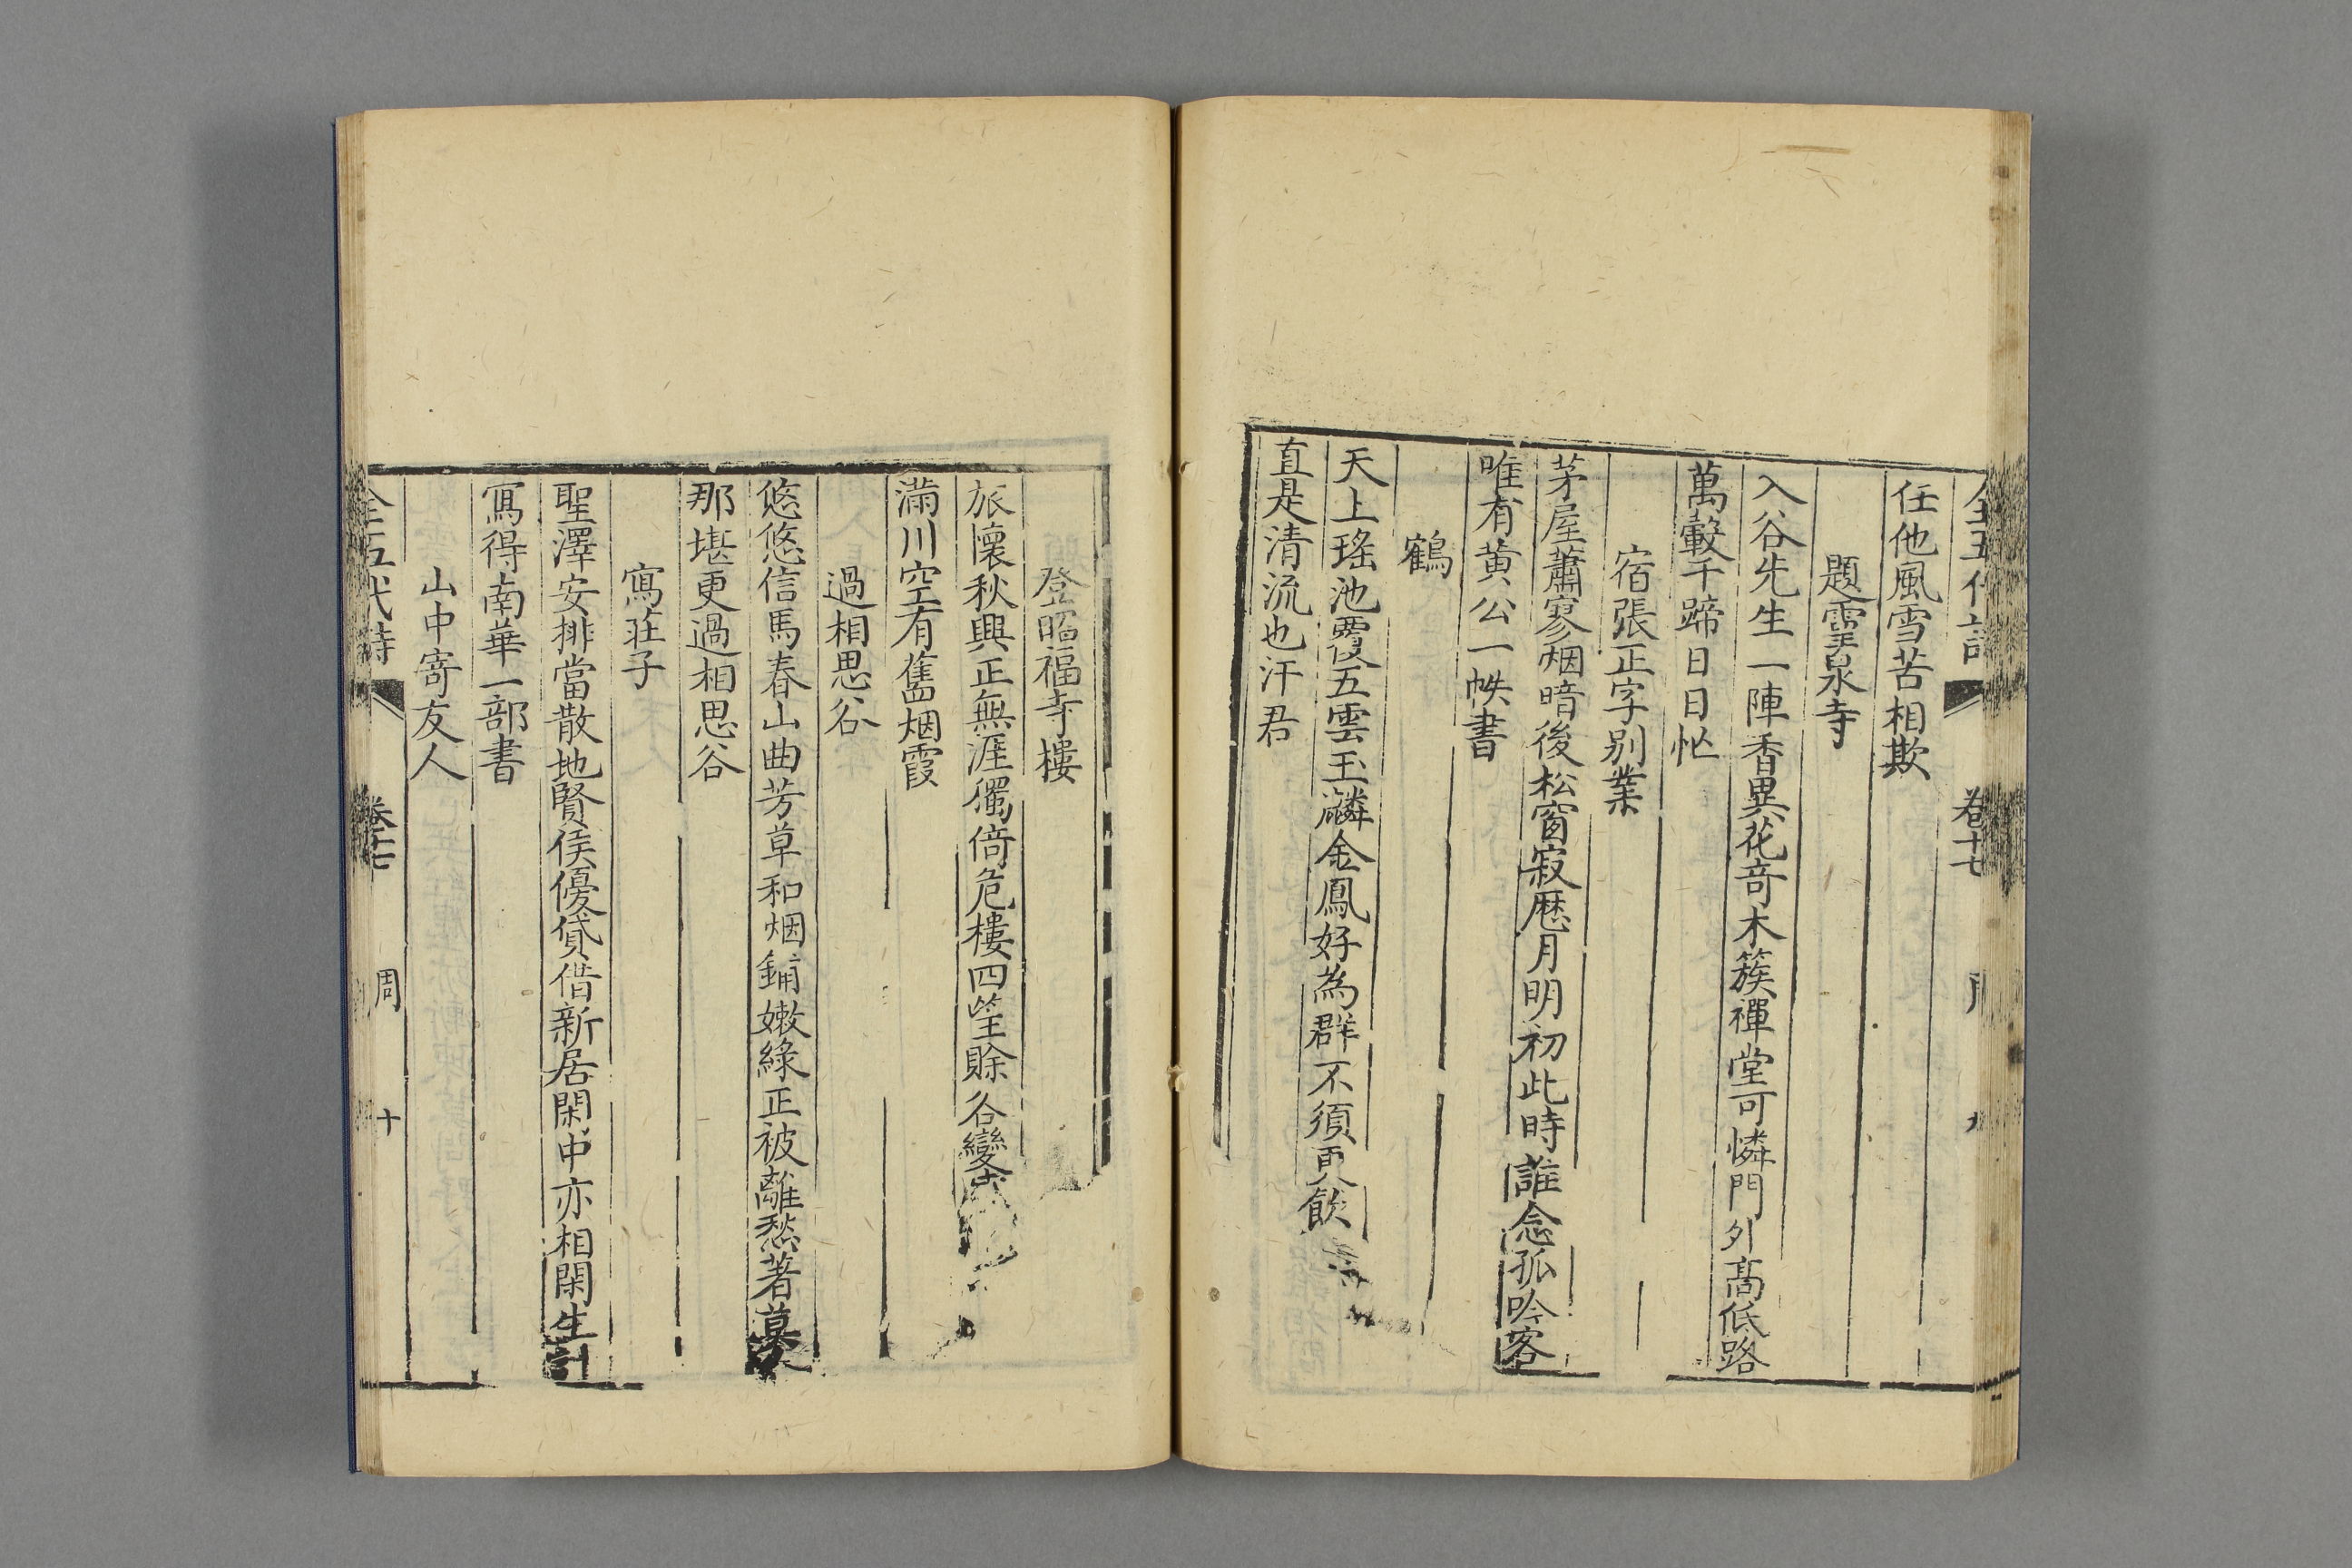 全五代詩 卷十七
任他風雪苦相欺
題靈泉寺
入谷先生一陣香異花奇木簇禪堂可憐門外高低路
萬轂千蹄日日忙
宿張正字别業
茅屋蕭寥烟暗後松窗寂歷月明初此時誰念孤吟客
唯有黄公一帙書
鶴
天上瑤池覆五雲玉麟金鳳好為群不須更飲
直是清流也汗君
登昭福寺樓
旅懷秋興正無涯獨倚危樓四望賖谷變
滿川空有舊烟霞
過相思谷
悠悠信馬春山曲芳草和烟鋪嫩綠正被離愁著莫
那堪更過相思谷
寫莊子
聖澤安排當散地賢侯優貸借新居閑中亦相閑生計
寫得南華一部書
山中寄友人
全五代詩 卷十七 周 十